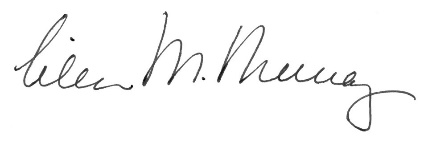 Eileen M. Murray